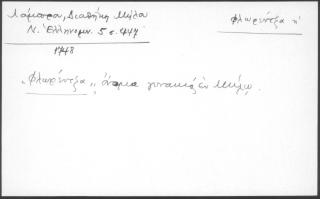 Λάμπρου, Διαθήκη Μήλου
Ν. Ελληνομν. 5 σ. 447
1748
φλωρέντζα ἡ
„φλωρέντζα„ ὄνομα γυναικὸς ἐν Μήλῳ.